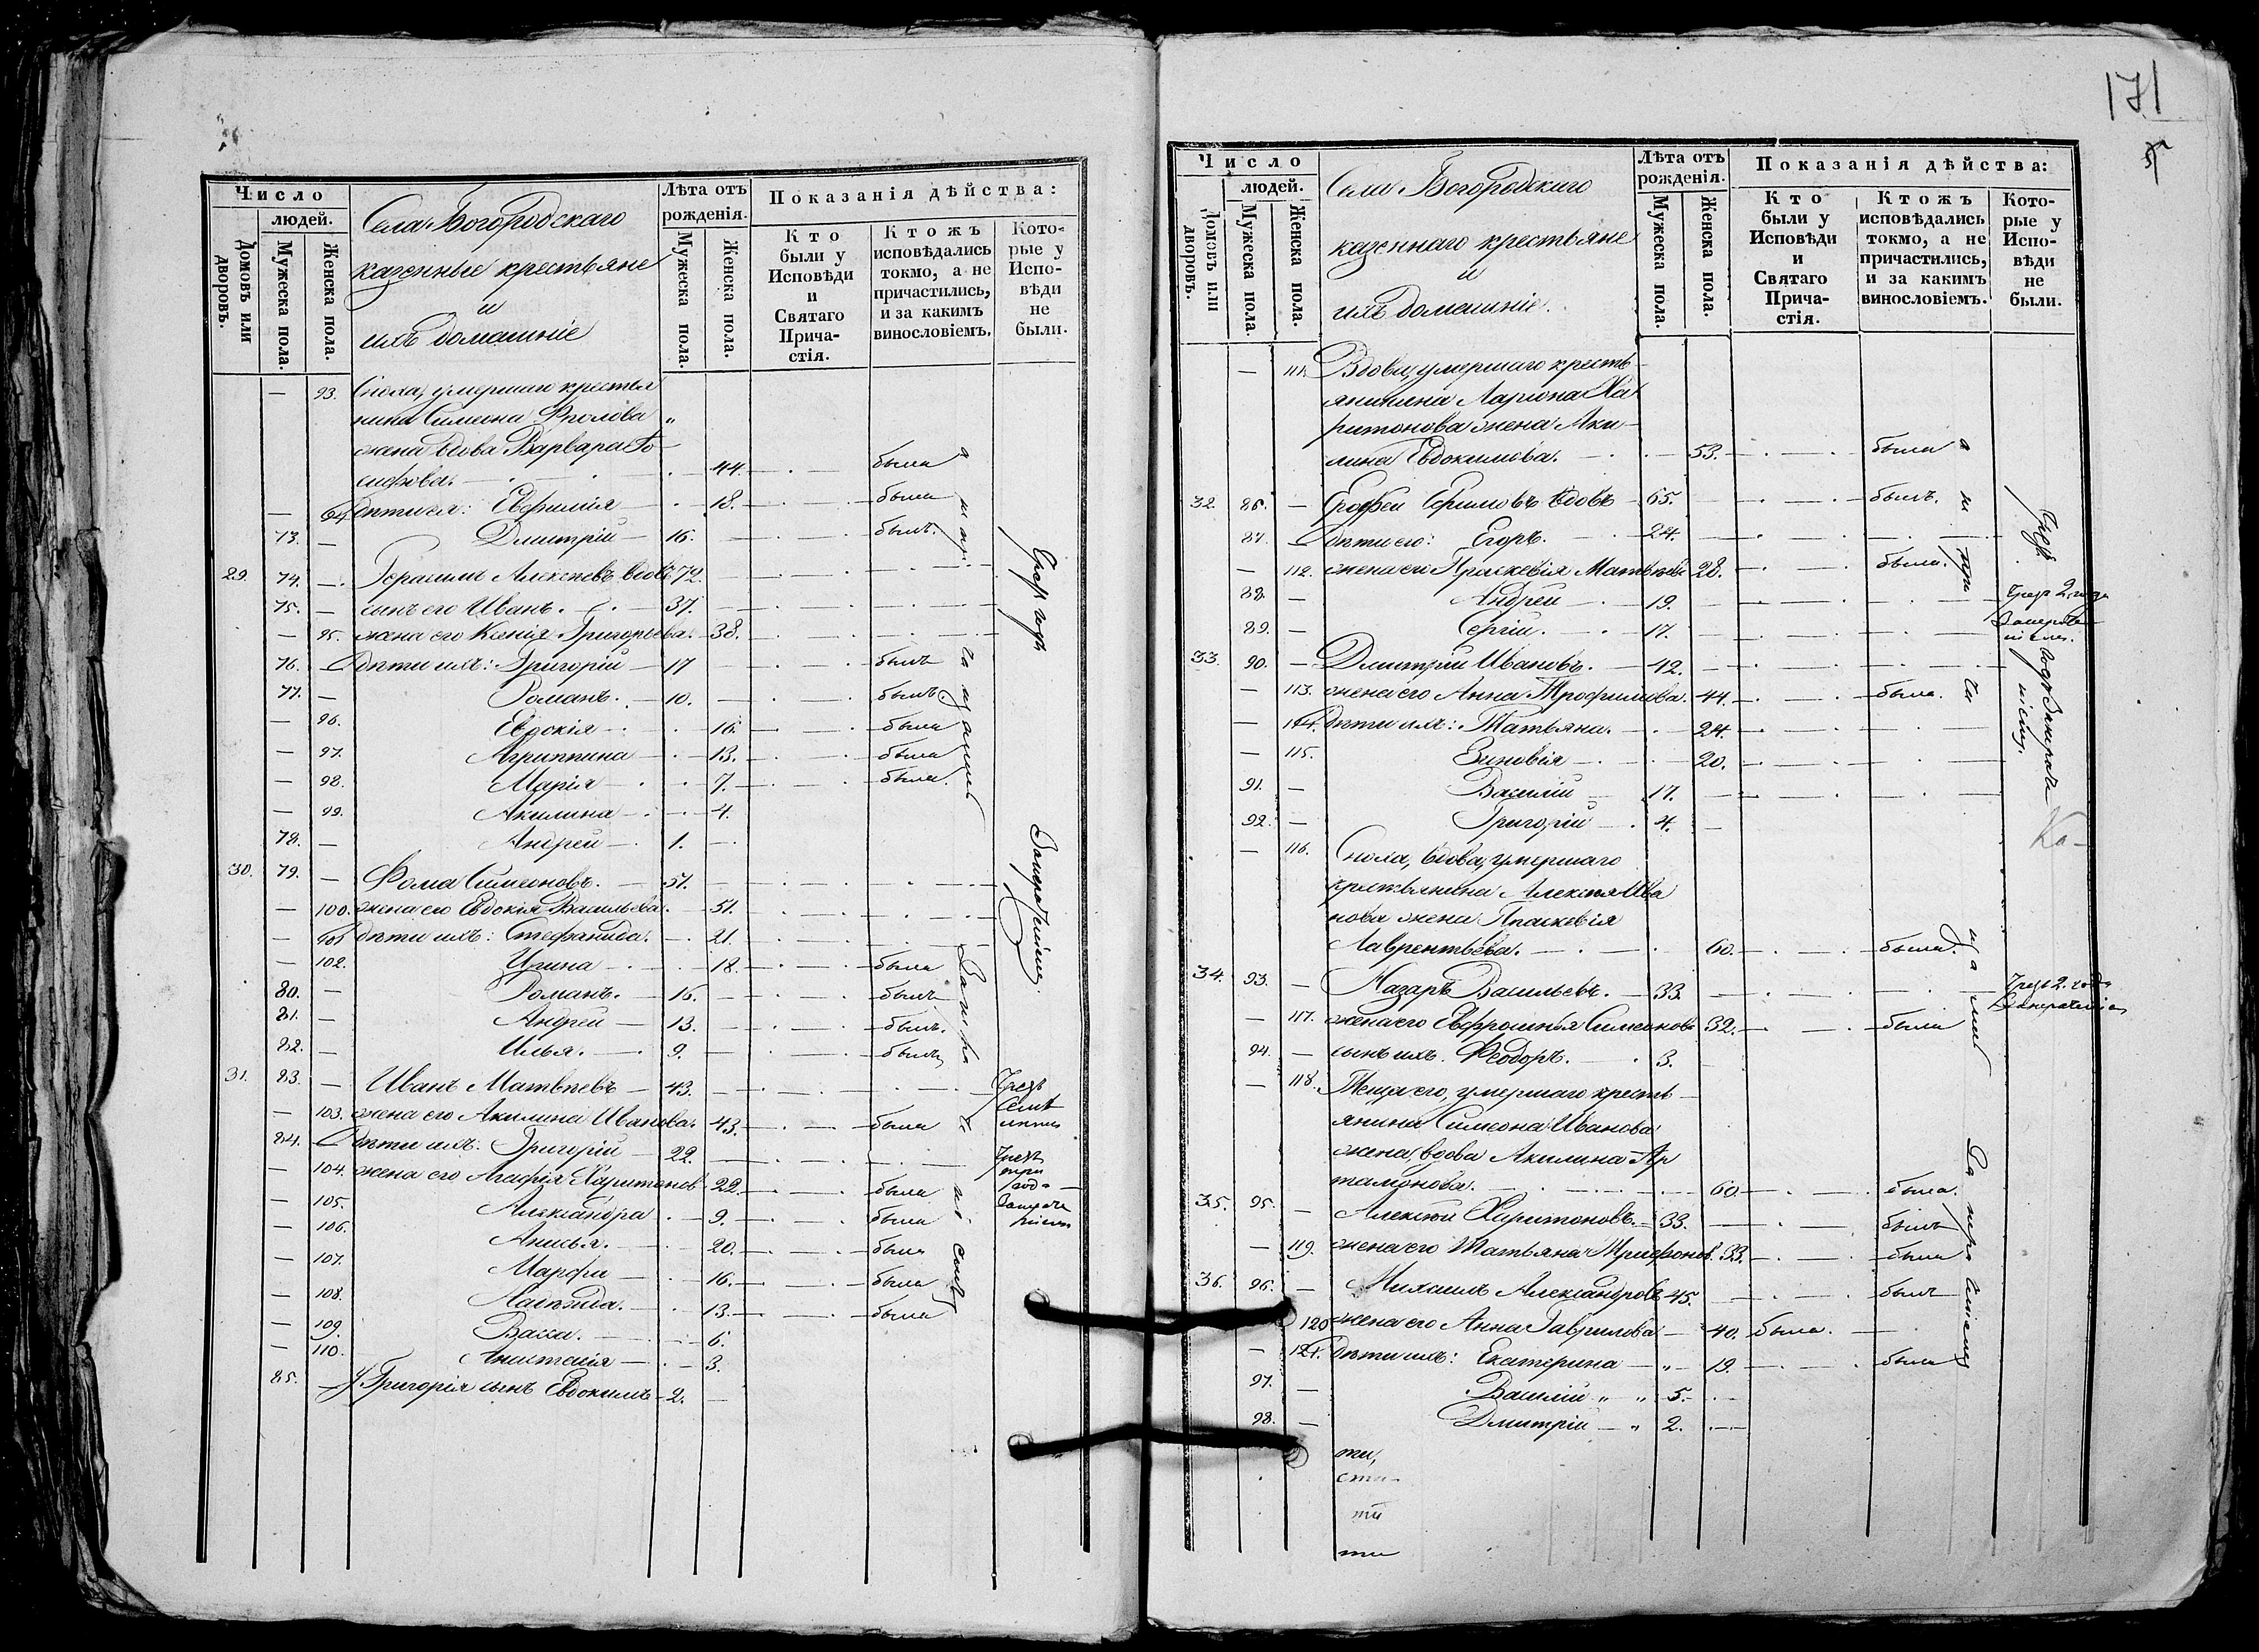 Число
людей.
Домовъ или дворовъ.
Мужеска пола.
Женска пола.
Села Богородскаго
казенные крестьяне
и
ихъ домашніе
Лѣта отъ рожденія.
Мужеска пола.
Женска пола.
Показанія дѣйства:
Кто были у Исповѣди и Святаго Прича-стія.
Ктожъ исповѣдались токмо, а не причастились, и за какимъ винословіемъ.
Кото-рые у Испо-вѣди не были.
— 93. Сноха, умершаго крестья
нина Симеона Фролова „
жена вдова Варвара Іо-
сифова. — 44. — была
— 94. Дѣти ея: Евфимія — 18. — была
73. — Димитрій — 16. — былъ.
29. 74. — Герасимъ Алексѣевъ вдовъ 72. —
75. — сынъ его Иванъ. — 37. —
— 95. жена его Ксенія Григорьева. — 38. —
76. — Дѣти ихъ: Григорій — 17 — былъ
77. — Романъ. — 10. — былъ.
— 96. Евдокія — 16. — была
— 97. Агриппина — 13. — была
— 98. Марія — 7. — была.
— 99. Акилина — 4.
78. — Андрей — 1. —
30. 79. — Фома Симеоновъ. — 51. —
— 100. жена его Евдокія Васильева. — 51. —
— 101 дѣти ихъ: Стефанида. — 21. —
— 102. Ирина — 18. — была
80. — Романъ. — 16. — былъ
81. — Андрей — 13. — былъ.
82. — Илья. — 9. — былъ
31. 83. — Иванъ Матвѣевъ — 43. — Чрезъ
— 103. жена его Акилина Иванова. 43. — была
84. — Дѣти ихъ: Григорій — 22. — Чрезъ три
— 104. жена его Агафія Харитонов 22. — была
— 105. Александра — 9. — была
— 106. Анисья. — 20. — была
— 107. Марфа — 16. — была
— 108. Надежда. — 13. — была
— 109. Васса. — 6.
— 110. Анастасія — 3.
85. — У Григорія сынъ Евдокимъ — 2. —
171
Число
людей.
Домовъ или дворовъ.
Мужеска пола.
Женска пола.
Села Богородскаго
казеннаго крестьяне
и
ихъ домашніе.
Лѣта отъ рожденія.
Мужеска пола.
Женска пола.
Показанія дѣйства:
Кто были у Исповѣди и Святаго Прича-стія.
Ктожъ исповѣдались токмо, а не причастились, и за какимъ винословіемъ.
Кото-рые у Испо-вѣди не были.
— 111. Вдова, умершаго кресть-
янина Ларіона Ха
ритонова жена Аки-
лина Евдокимова. — 53. — была
32. 86. — Ерофей Ефимовъ вдовъ — 65. — былъ.
87. — Дѣти его: Егоръ. — 24. —
— 112. жена его Праскевія Матвѣев 28. — была.
88. — Андрей — 19. — Чрезъ 2 года
89. — Сергій. — 17. —
33. 90. — Димитрій Ивановъ. — 42. —
— 113. жена его Анна Трофимова. 44. — была.
— 114. Дѣти ихъ: Татьяна. — 24. —
— 115. Зиновія — 20. —
91. — Василій — 17. —
92. — Григорій — 4. —
— 116. Сноха, вдова, умершаго
крестьянина Алексѣя Ива
нова жена Праскевія
Лаврентьева. — 60. — была.
34. 93. — Назаръ Васильевъ. — 33. — Чрезъ 2. года
— 117. жена его Евфросинья Симеонова 32. — была
94. — сынъ ихъ Феодоръ. — 3. —
— 118. Теща его, умершаго кресть-
янина Симеона Иванова
жена, вдова Акилина Ар
тамонова. — 60. — была.
35. 95. — Алексѣй Харитоновъ. — 33. — былъ
— 119. жена его Татьяна Трифонов. 33. — была
36. 96. — Михаилъ Александровъ 45. — былъ
120 жена его Анна Гаврилова — 40. была. —
— 121. Дѣти ихъ: Екатерина — „ — 19. — была
97. — Василій „ „ 5. —
98. — Дмитрій — „ 2. —